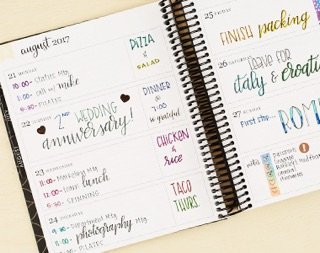 august 2017
21 MONDAY
PIZZA
& SALAD
10:00- Status Mtg
1:00- call w/ mike
5:30- PILATES
22 TUESDAY
2ND WEDDING
anniversary!
DINNER @
7:00
w/
23 WEDNESDAY
9:00- Marketing Mtg
11:00- team lunch
5:30- SPINNING
CHICKEN
& rice
24 THURSDAY
9:30- Department Mtg
photography Mtg
PILATES
TACO
THURS.
25 FRIDAY
FINISH packing
26 SATURDAY
LEAVE FOR
italy & croatia
27 SUNDAY
First stop...
ROM